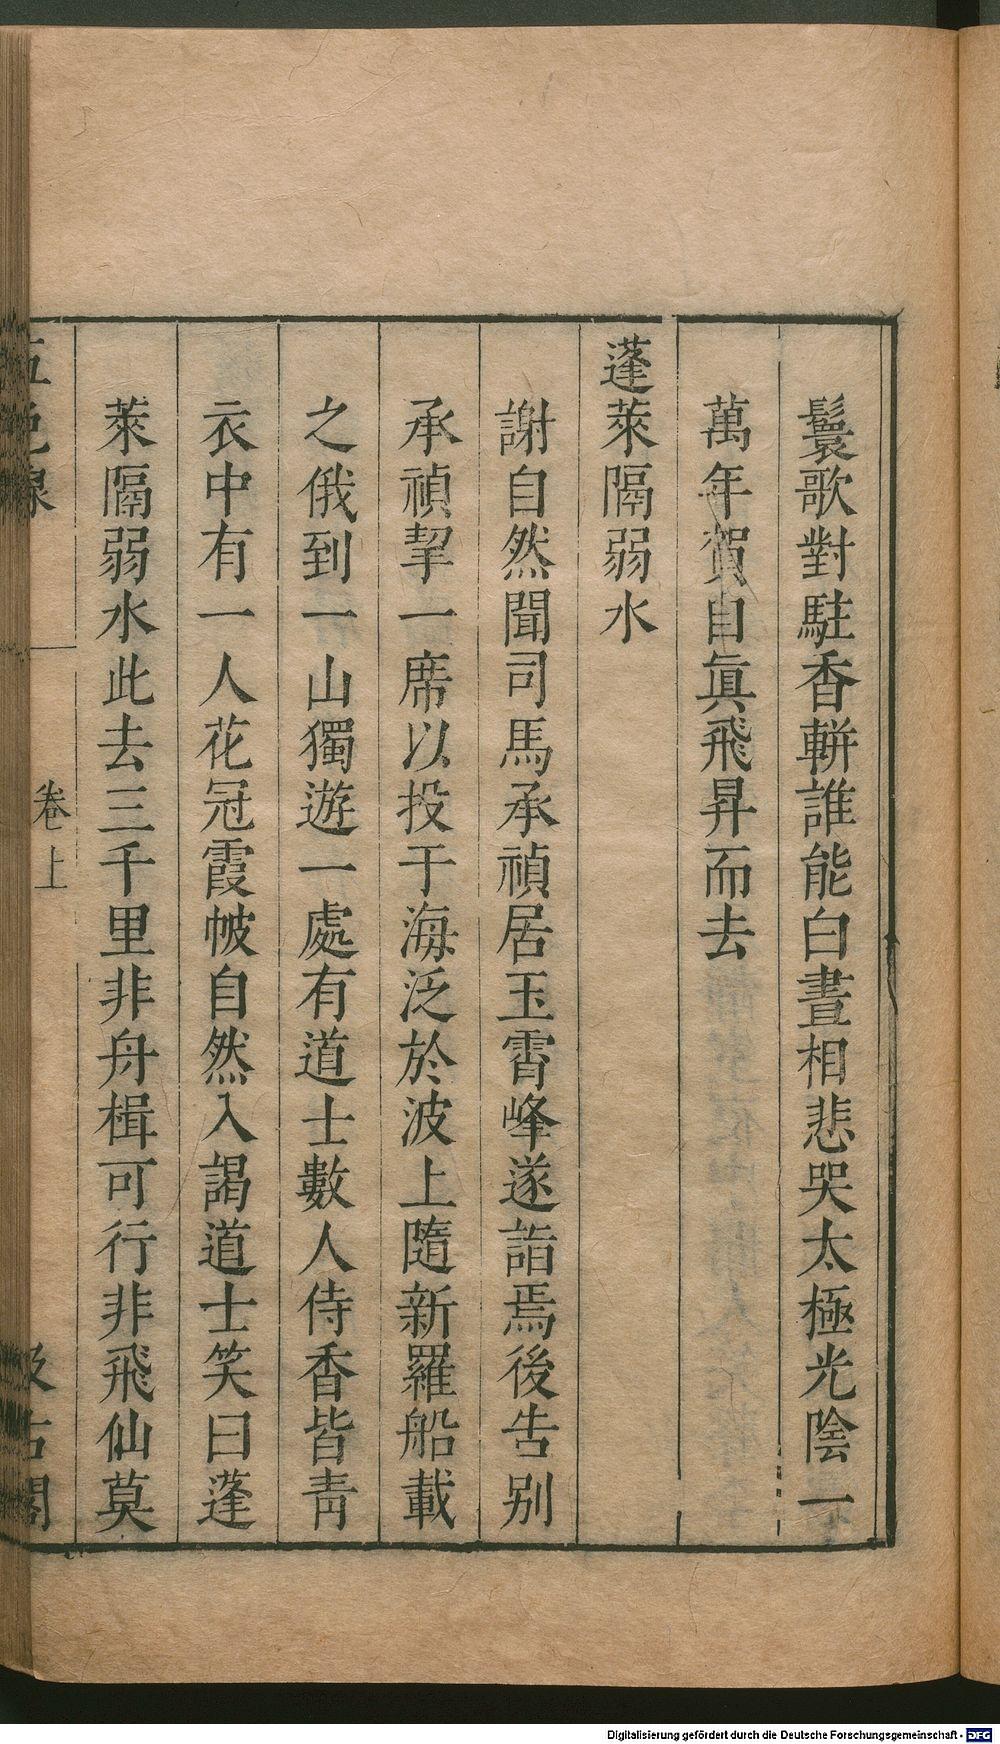 鬟歌對駐香軿誰能白晝相悲哭太極光陰一
萬年賀自眞飛昇而去
蓬萊隔弱水
謝自然聞司馬承禎居玉霄峰遂詣焉後告别
承禎挈一席以投于海泛於波上隨新羅船載
之俄到一山獨遊一處有道士數人侍香皆靑
衣中有一人花冠霞帔自然入謁道士笑曰蓬
萊隔弱水此去三千里非舟楫可行非飛仙莫
五色線 卷上 汲古閣
Digitalisierung gefördert durch die Deutsche Forschungsgemeinschaft - DFG